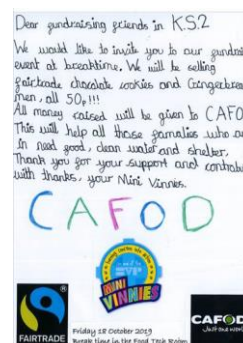 Dear fundraising friends in K.S.2
We would like to invite you to our fundrai
event at breaktime. We will be selling
fairtrade chocolate cookies and Gingerbrea
men, all 50p!!!
All money raised will be given to CAFO
This will help all those families who are
in need food, clean water and shelter.
Thank you for your support and
with thanks, your Mini Vinnies.
CAFOD
MINI
VINNIES
FAIRTRADE
Friday 18 October 2019
Break time in the Food Tech Room
CAFOD
Just one world